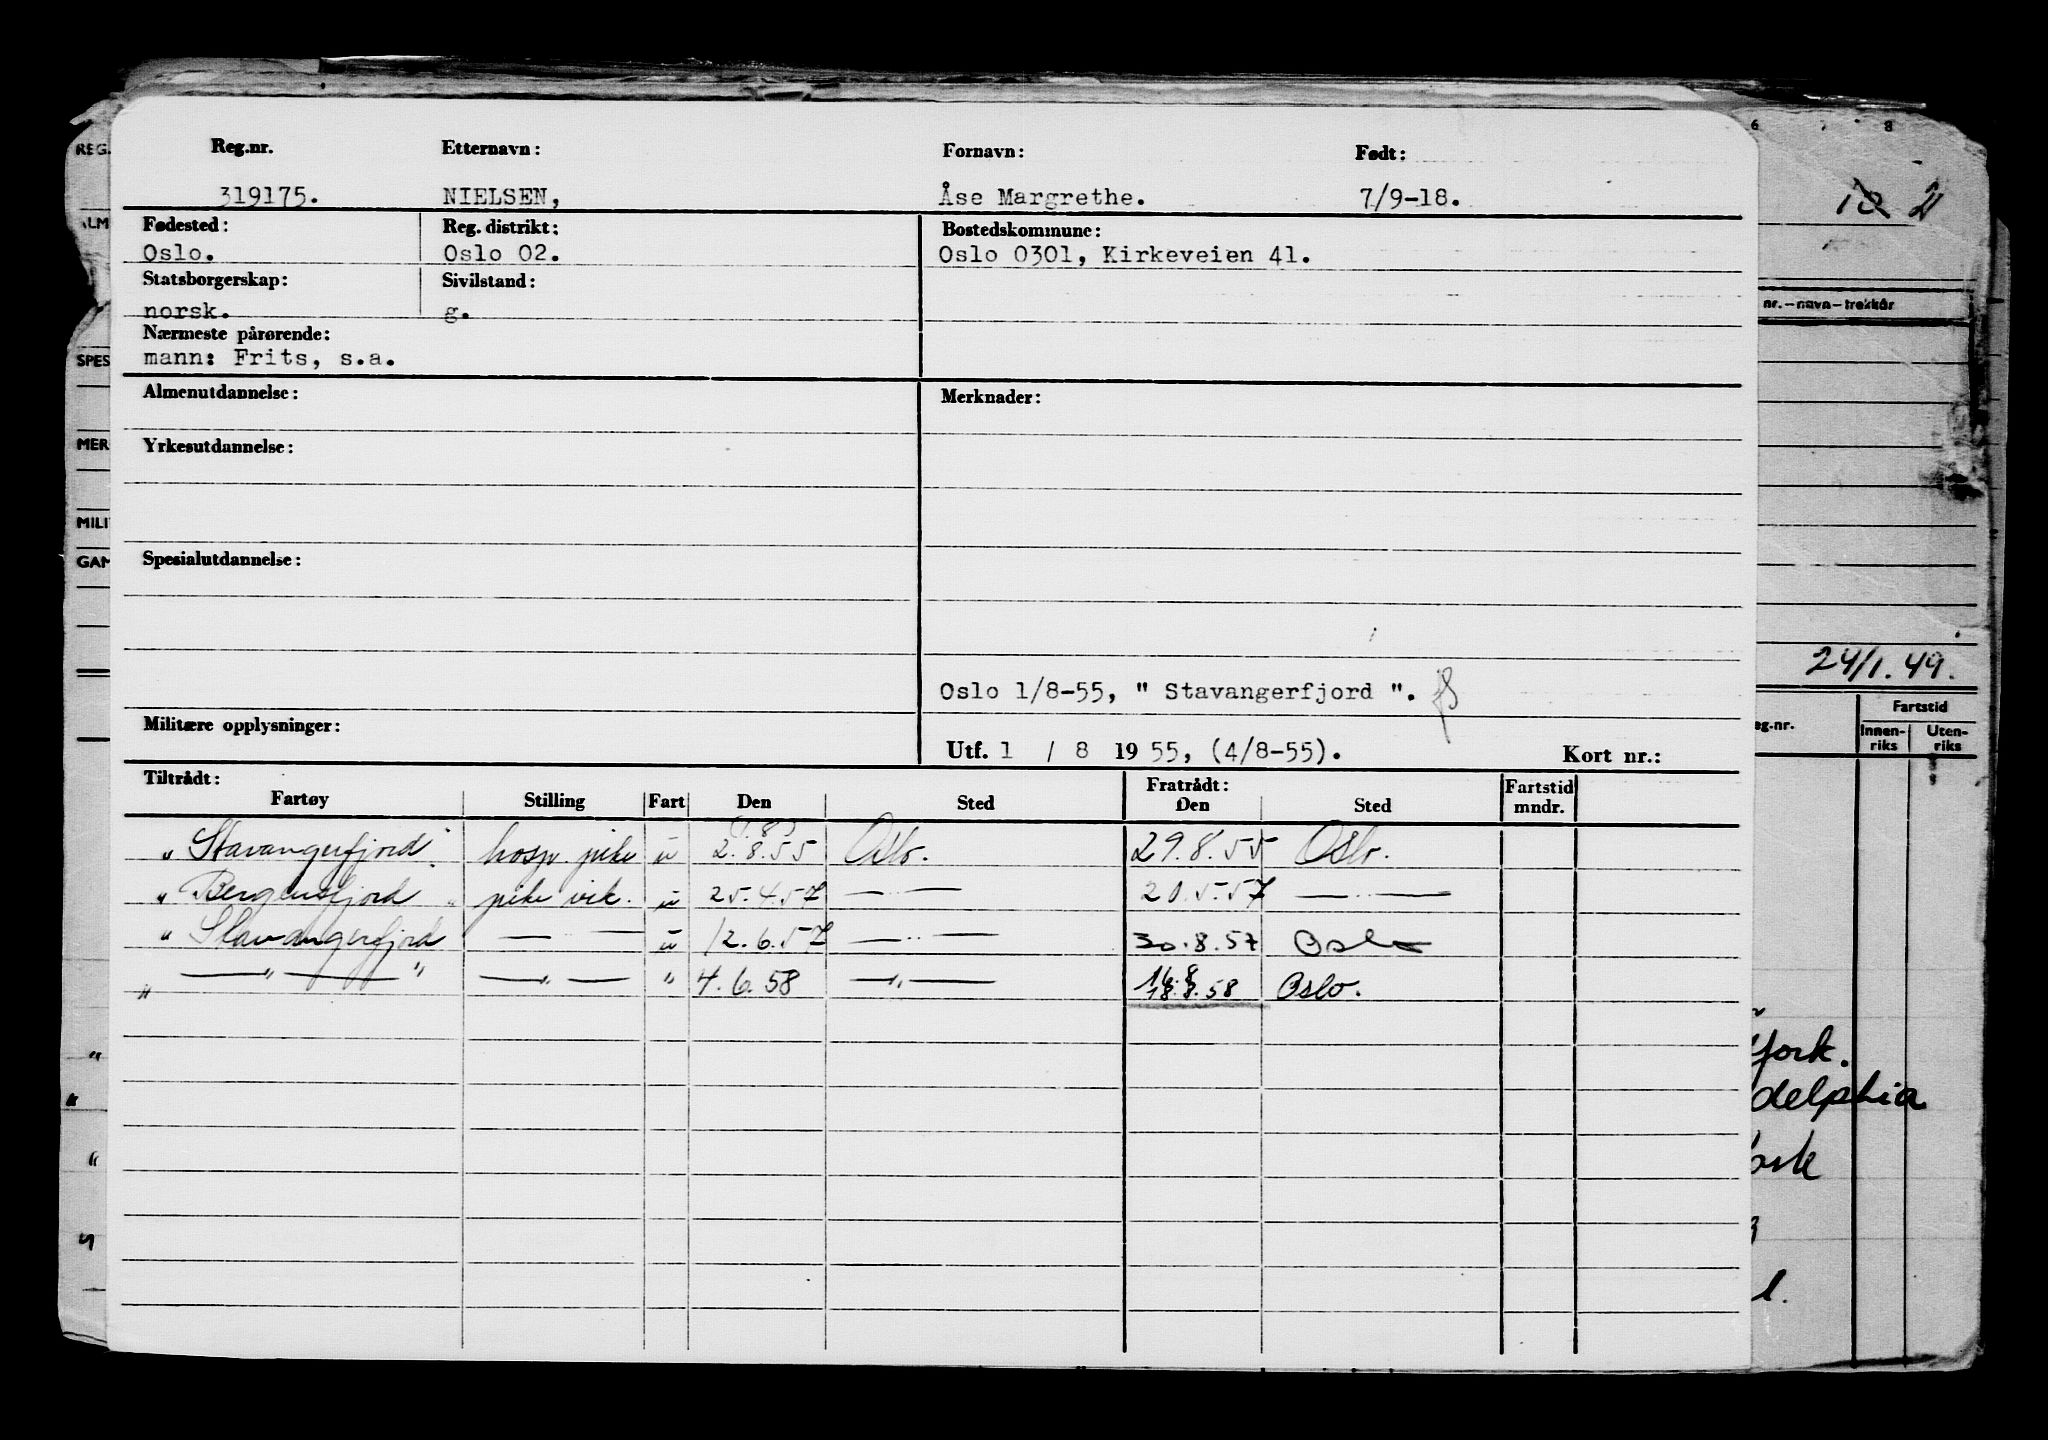 Reg.nr. Etternavn: Fornavn: Født:
319175. NIELSEN, Åse Margrethe. 7/9-18.
Fødested: Reg. distrikt: Bostedskommune:
Oslo. Oslo 02. Oslo 0301, Kirkeveien 41.
Statsborgerskap: Sivilstand:
norsk. g.
Nærmeste pårørende:
mann: Frits, s.a.
Almenutdannelse: Merknader:
Yrkesutdannelse:
Spesialutdannelse:
Oslo 1/8-55, " Stavangerfjord ".
Militære opplysninger:
Utf. 1 / 8 1955, (4/8-55). Kort nr.:
Tiltrådt: Fratrådt: Fartstid
Fartøy Stilling Fart Den Sted Den Sted mndr.
"Stavangerfjord" hosp. pike u 2.8.55 Oslo. 29.8.55 Oslo.
"Bergensfjord" pike vik. u 25.4.57 — " — 20.5.57 — " —
"Stavangerfjord — " — u 12.6.57 — " — 30.8.57 Oslo
" — " — " — " — " 4.6.58 — " — 18.8.58 Oslo.
16.8
REG.
ALM
SPES
MER
MILI
GAM
6 7 8
10 21
nr.-navn-trekkår
24/1.49.
eg.nr. Fartstid
Innen-riks Uten-riks
York.
delphia
ork
l.